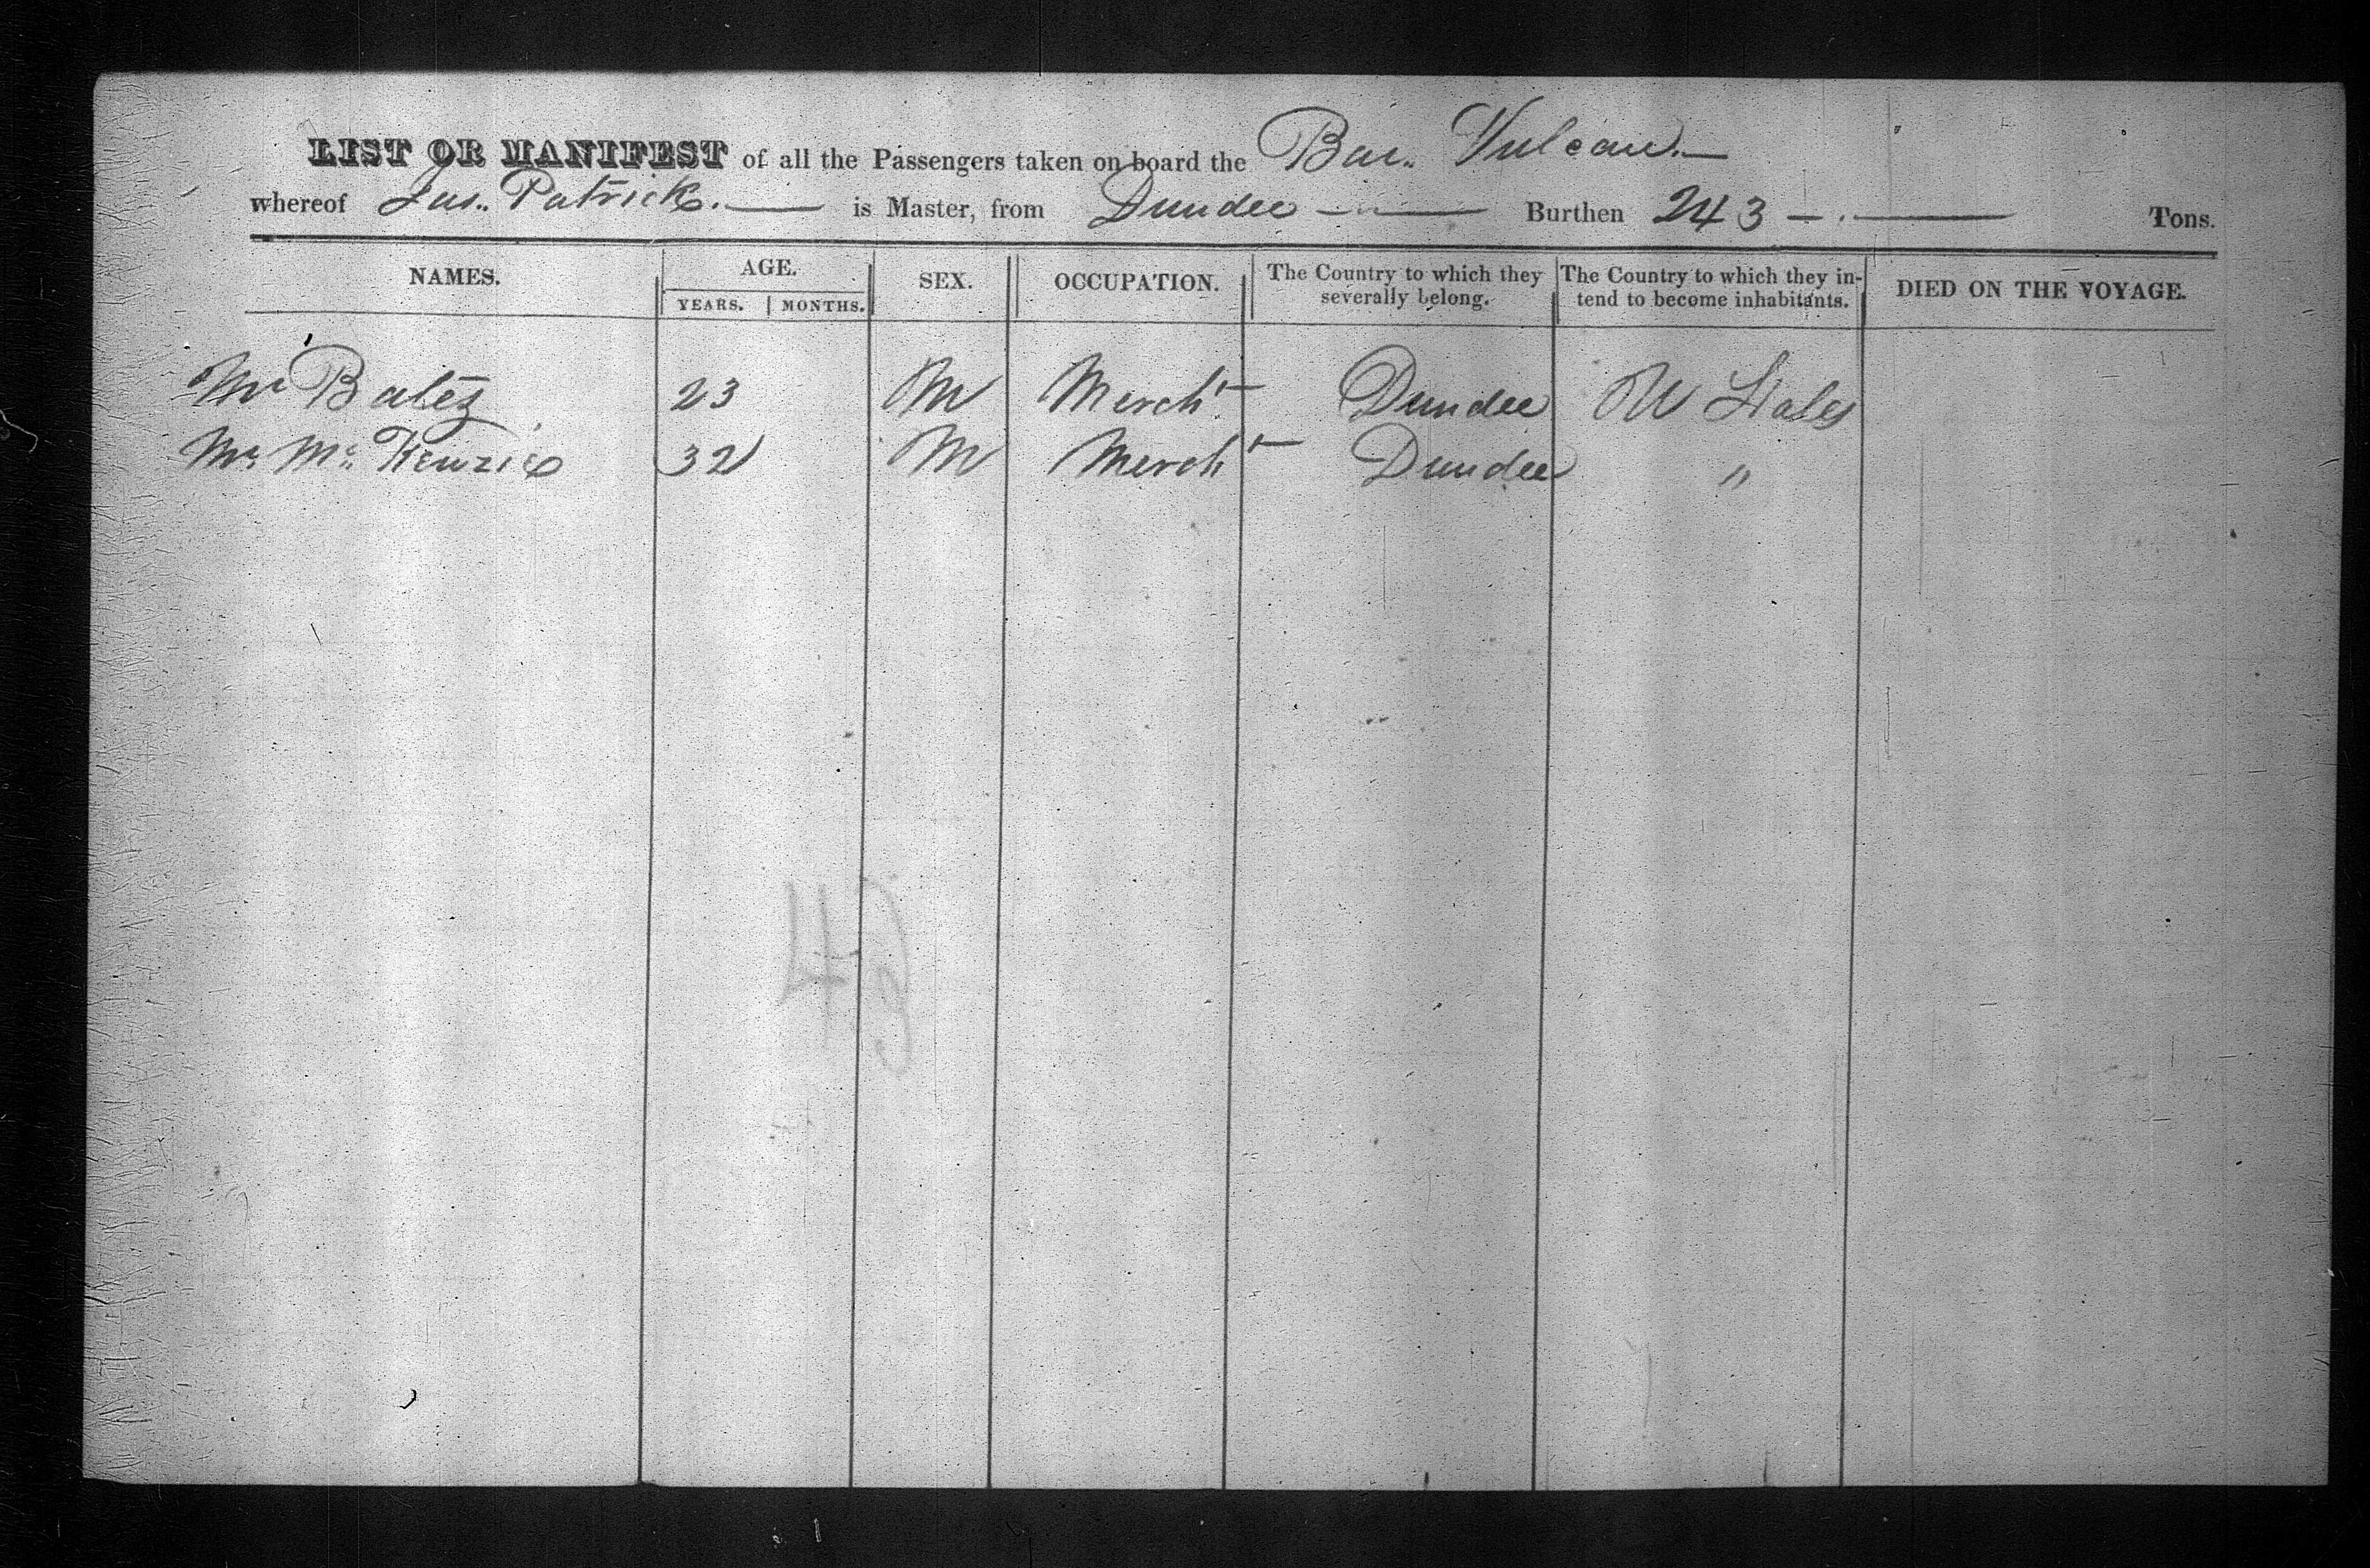 LIST OR MANIFEST of all the Passengers taken on board the Bar. Vulcan.
whereof Jas. Patrick. is Master, from Dundee Burthen 243 Tons.
NAMES. AGE. SEX. OCCUPATION. The Country to which they severally belong. The Country to which they intend to become inhabitants. DIED ON THE VOYAGE.
YEARS. MONTHS.
Mr Bates 23 M Mercht Dundee U States
Mr. Mc. Kenzie 32 M Mercht Dundee "